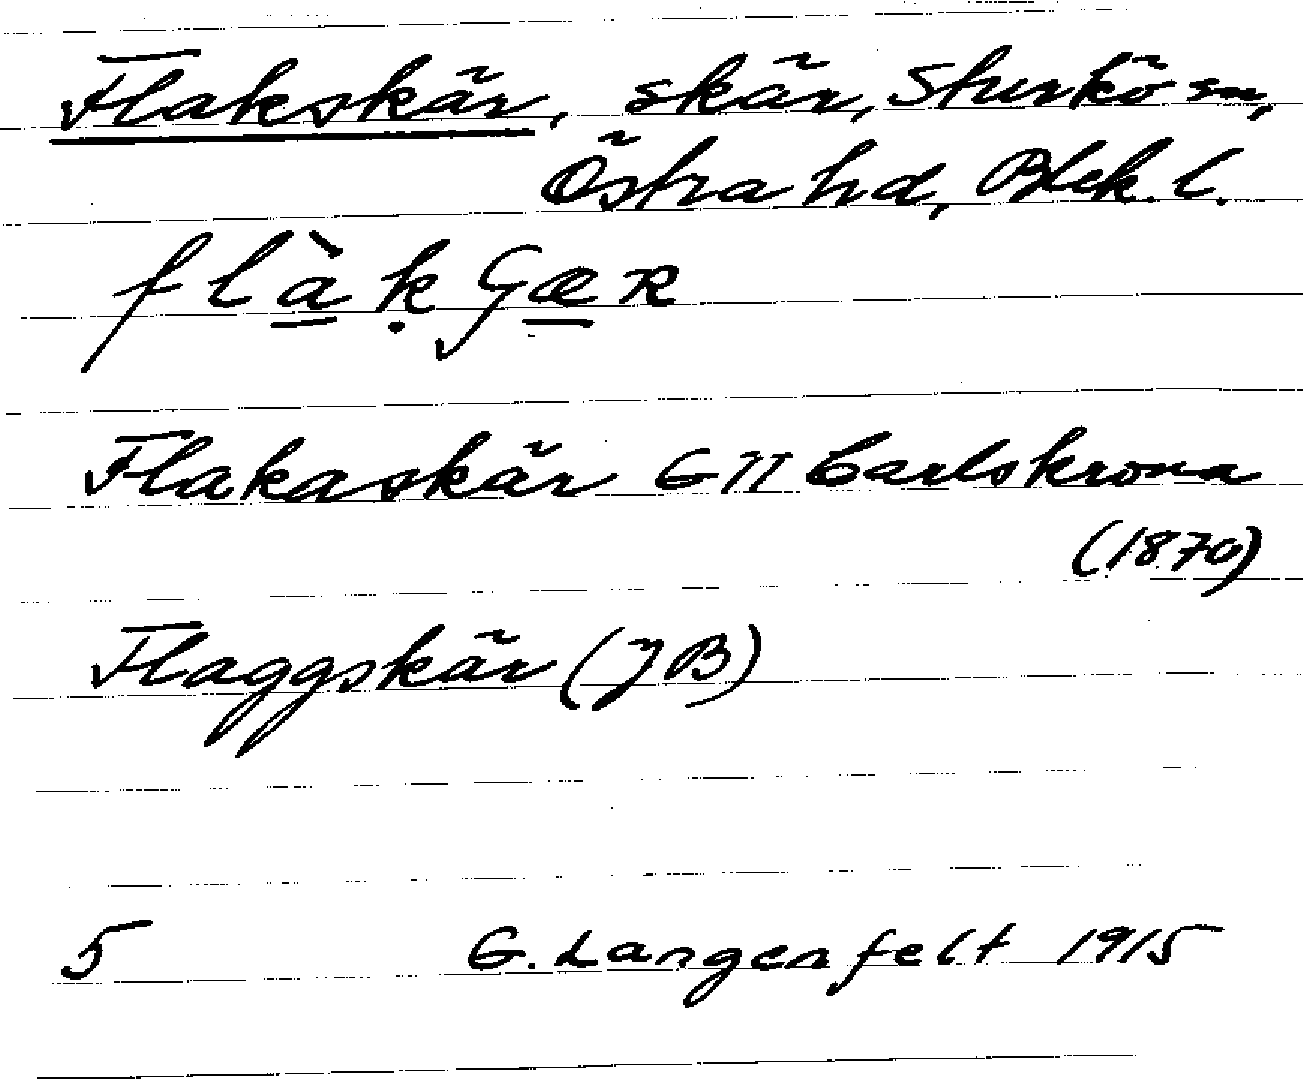 Flakskär, skär, Sturkö sn,
Östra hd, Blek. l.
flàḳɢæʀ
Flakaskär GK Carlskrona
(1870)
Flaggskär (JB)
5 G. Langenfelt 1915